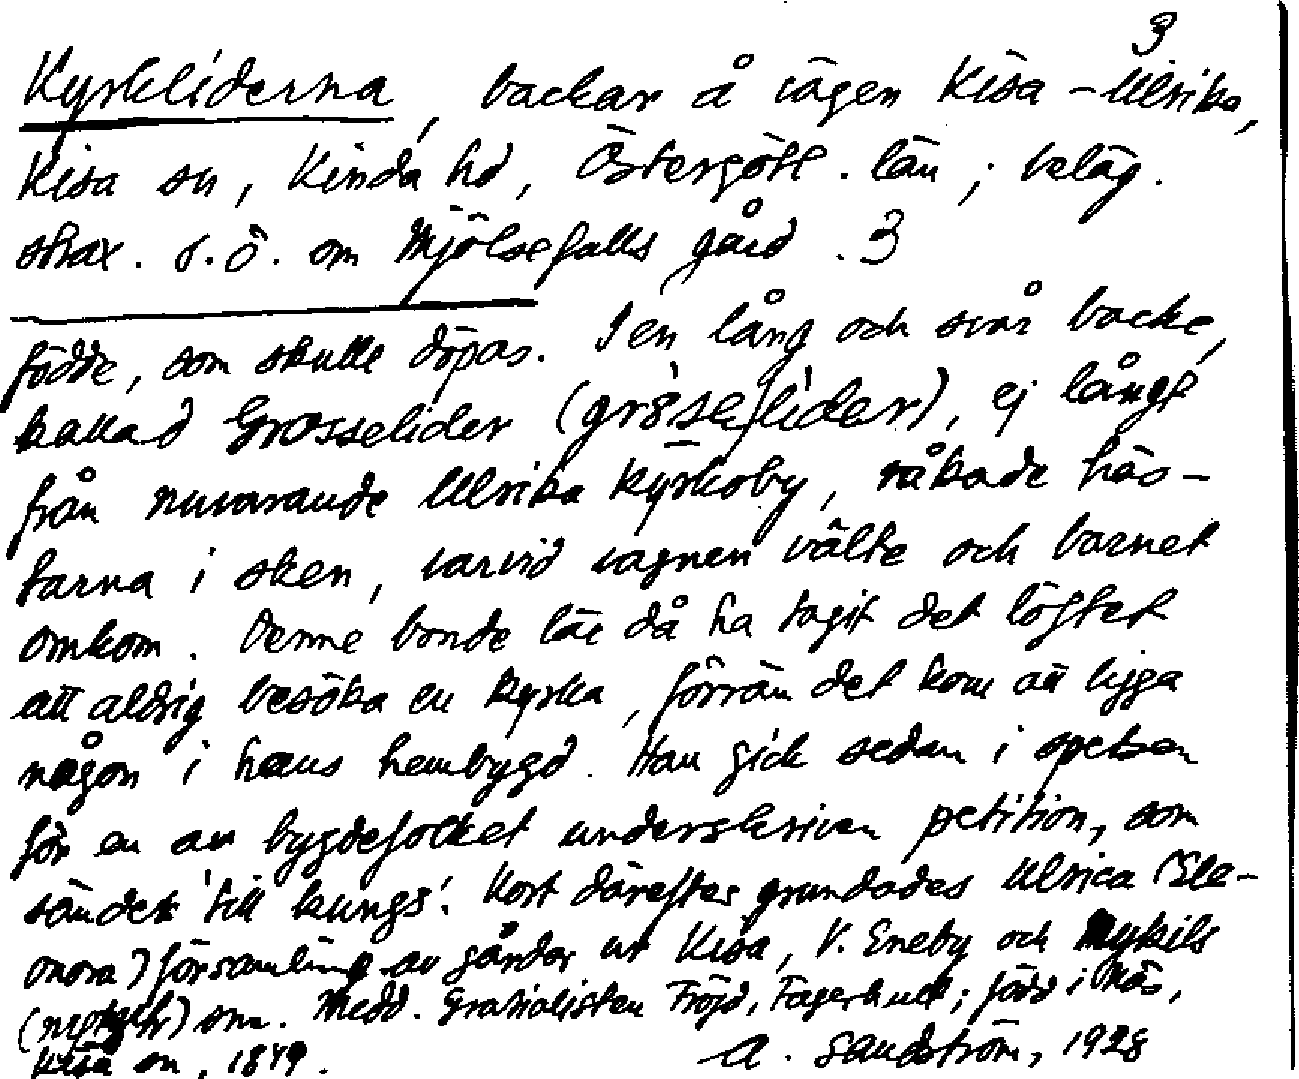 3
Kyrkliderna, backar å vägen Kisa – Ulrika,
Kisa sn, Kinda hd, Östergötl. län; beläg.
strax. s.ö. om Mjölsefalls gård. 3
födde, som skulle döpas. I en lång och svår backe,
kallad Grosselider (grösselider), ej långt
från nuvarande Ulrika kyrkoby, råkade häs-
tarna i sken, varvid vagnen välte och barnet
omkom. Denne bonde lär då ha tagit det löftet
att aldrig besöka en kyrka, förrän det kom att ligga
någon i hans hembygd. Han gick sedan i spetsen
för en av bygdefolket underskriven petition, som
sändes 'till kungs'. Kort därefter grundades Ulrica (Ele-
onora) församling av gårdar ur Kisa, V. Eneby och Mykils
snr. Medd. Gratialisten Fröjd, Fagerhult; född i Näs,
Kisa sn, 1849.
A. Sandström, 1928